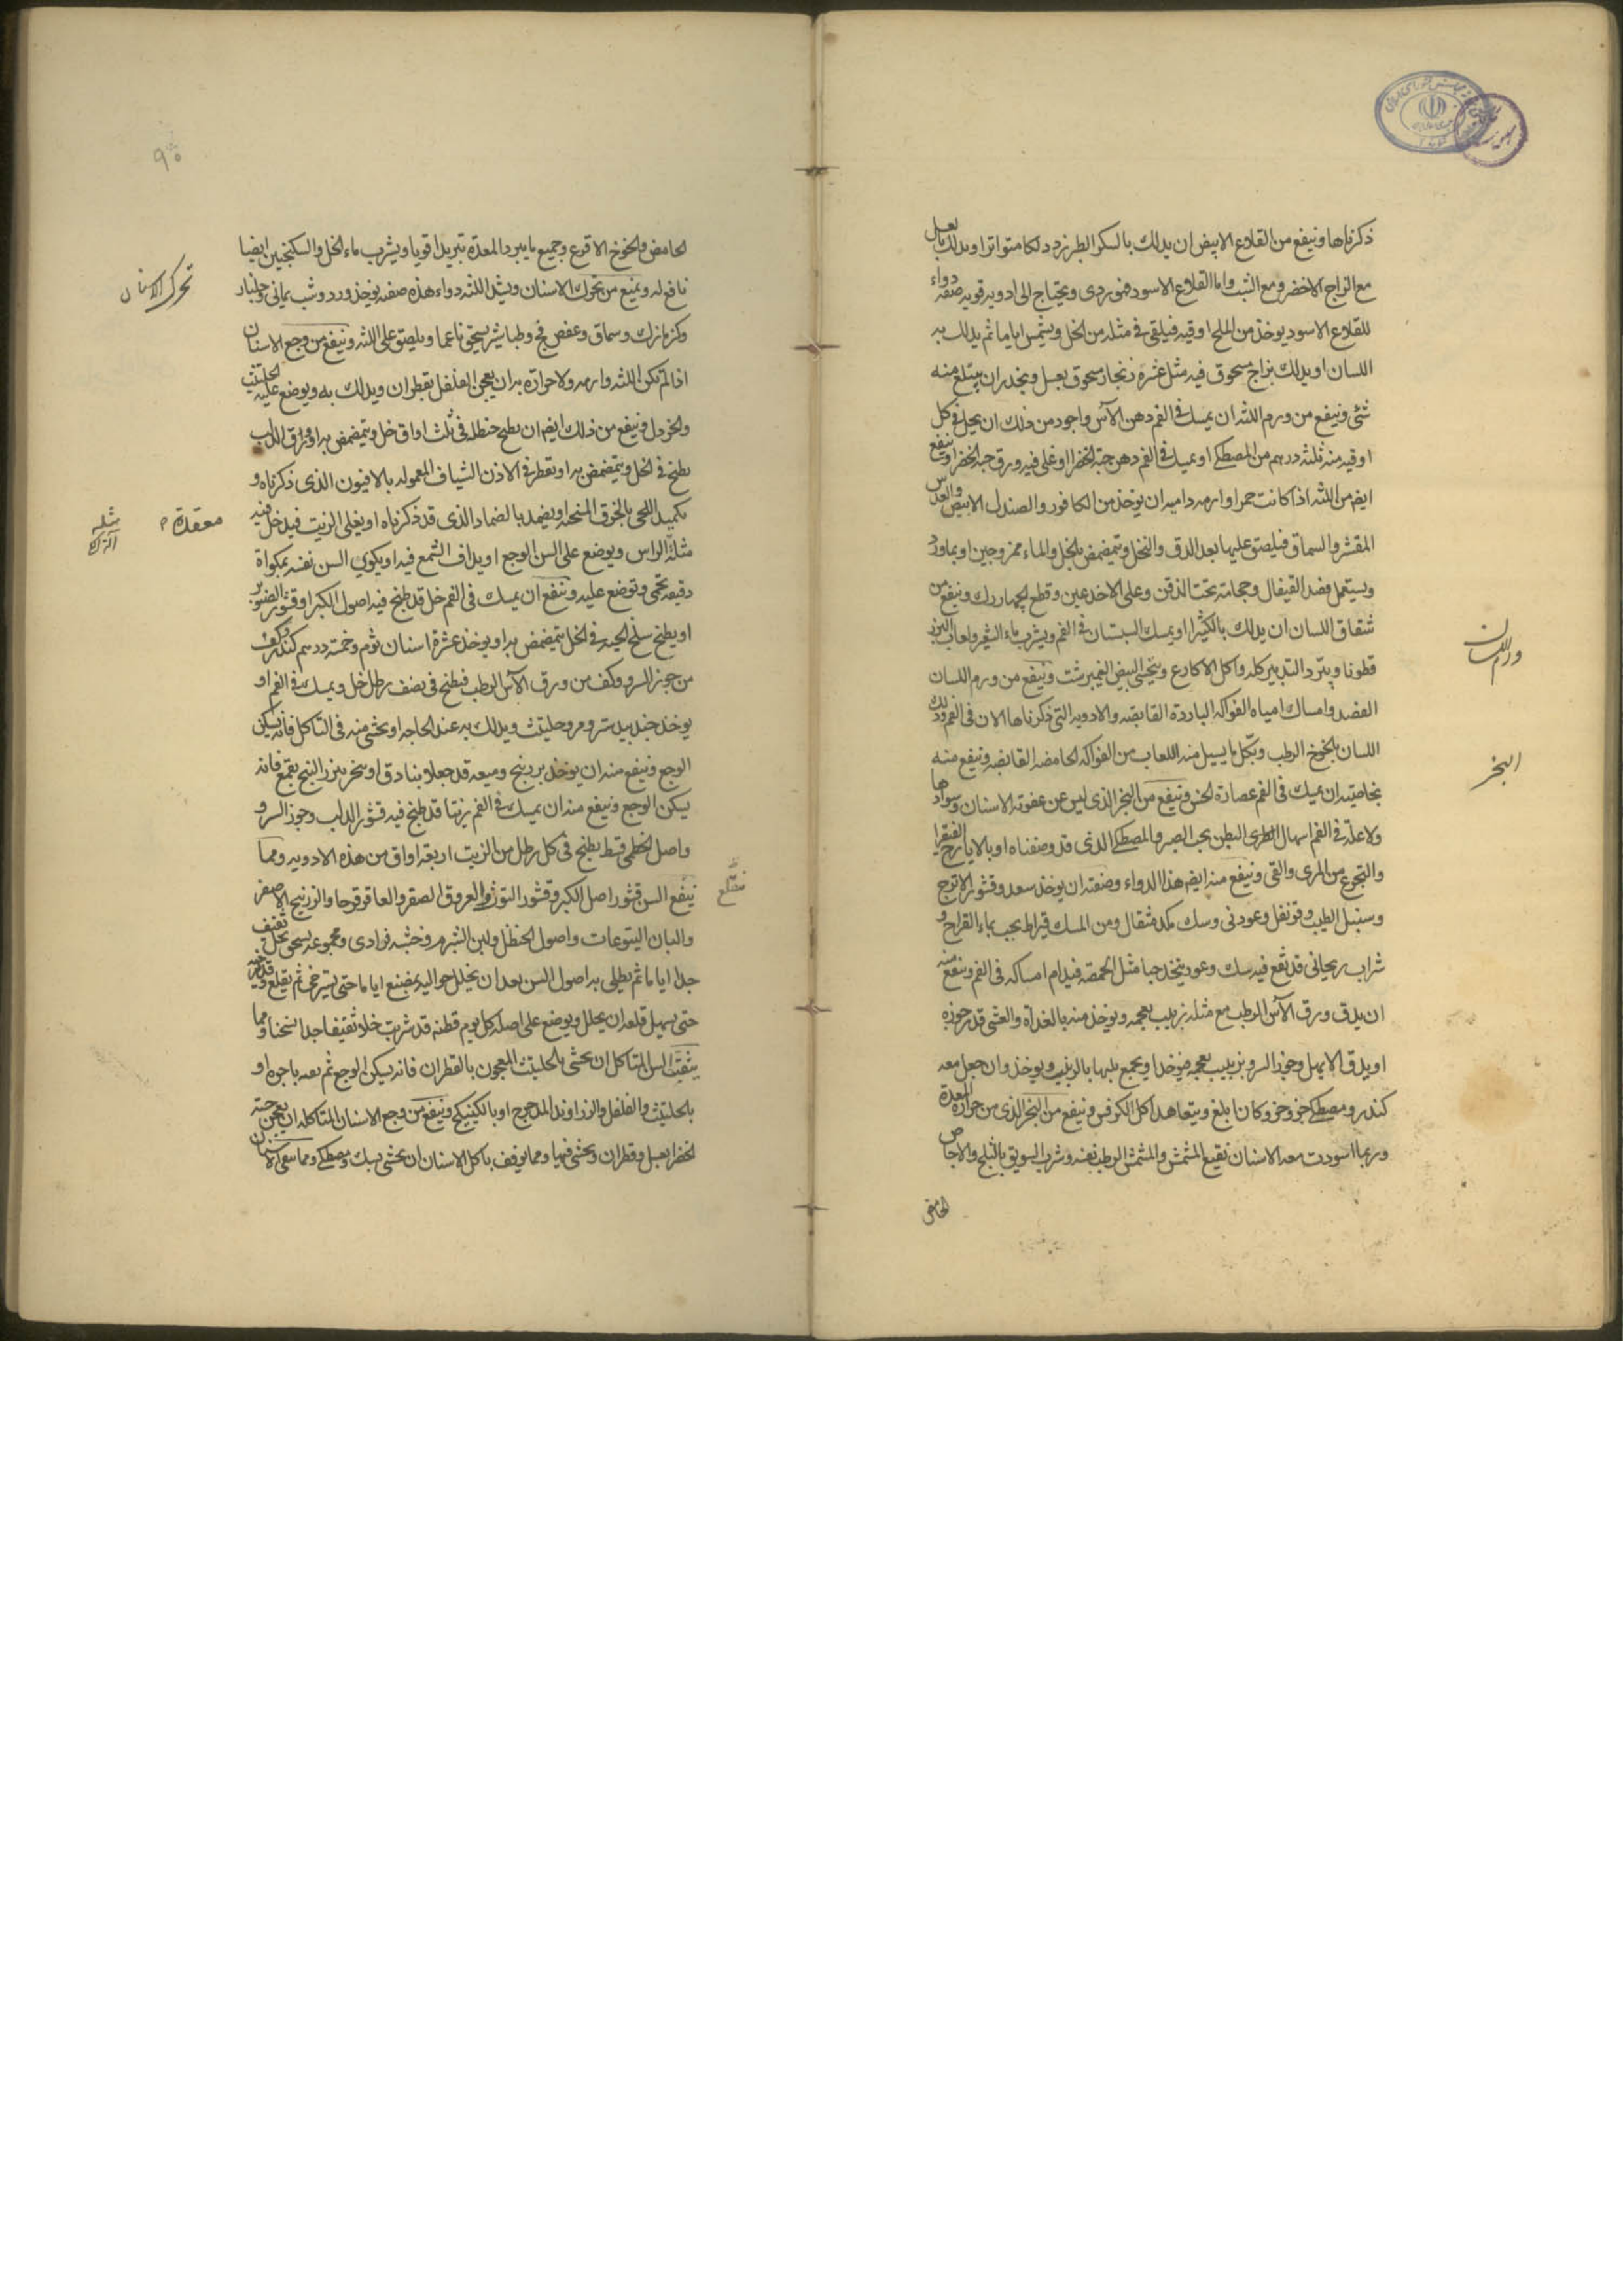 ذكرناها وينفع من القلاع الابيض ان يدلك بالسكر الطبرزد دلكا متواترا ويدلك بعسل
مع الزاج الاخضر ومع الشب واما القلاع الاسود فهو ردى ويحتاج الى ادويه قويه صفه دواء
للقلاع الاسود يوخذ من الملح اوقيه فيلقى فى مثله من الخل ويشمس اياما ثم يدلك به
اللسان او يدلك بزاج مسحوق فيه مثل عشره زنجار مسحوق بعسل ويحذر ان يبتلع منه
شئ وينفع من ورم اللثه ان يمسك فى الفم دهن الآس واجود من ذلك ان يحل فى كل
اوقيه منه ثلثه درهم من المصطكى او يمسك فى الفم دهن حبة الخضرا او غلى فيه ورق حبه الخضرا وينفع
ايضا من اللثه اذا كانت حمرا وارمه داميه ان يوخذ من الكافور والصندل الابيض والعدس
المقشر والسماق فيلصق عليها بعد الدق والنخل ويتمضمض بالخل والماء ممزوجين او بماورد
ويستعمل فصد القيفال وحجامة تحت الذقن وعلى الاخدعين وقطع الجهاررك وينفع من
شقاق اللسان ان يدلك بالكثيرا او يمسك السبستان فى الفم ويشرب ماء الشعير ولعاب البزر
قطونا ويبرد التدبير كله واكل الاكارع ويتحسى البيض النيمبرشت وينفع من ورم اللسان
الفصد وامساك امياه الفواكه الباردة القابضه والادويه التى ذكرناها الان فى الفم ودلك
اللسان بالخوخ الرطب وبكل ما يسيل منه اللعاب من الفواكه الحامضه القابضه وينفع منه
بخاصيته ان يمسك فى الفم عصارة الخس وينفع من البخر الذى ليس عن عفونة الاسنان وسوادها
ولا علة فى الفم اسهال البطن بحب الصبر والمصطكى الذى قد وصفناه او بالايارج الفيقرا
والتجرع من المرى والقى وينفع منه ايضا هذا الدواء وصفته ان يوخذ سعد وقشور الاترج
وسنبل الطيب وقرنفل وعود نى وسك مكد مثقال ومن المسك قيراط يحبب بماء القراح و
شراب ريحانى قد نقع فيه سك وعود يتخذ حبا مثل الحمصة فيدام امساكه فى الفم وينفع منه
ان يدق ورق الآس الرطب مع مثله زبيب بعجمه ويوخذ منه بالغداة والعشى قدر جوزه
او يدق الابهل وجوز السرو بزبيب بعجمه فيوخذ او يجمع بالزبيب ويوخذ وان جعل معه
كندر ومصطكى جزو جزو كان ابلغ ويتعاهد اكل الكرفس وينفع من البخر الذى من حرارة المعدة
وربما اسودت معه الاسنان نقيع المشمش والمشمش الرطب نفسه وشرب السويق بالثلج والاجاص
الحامض
ورم اللسان
البخر
٩٠
الحامض والخوخ الاقرع وجميع ما يبرد المعدة تبريدا قويا ويشرب ماء الخل والسكنجبين ايضا
نافع له ويمنع من تحرك الاسنان ويشد اللثه دواء هذه صفته يوخذ ورد وشب يمانى وجلنار
وكزمازك وسماق وعفص فج وطباشير يسحق ناعما ويلصق على اللثه وينفع من وجع الاسنان
اذا لم تكن اللثه وارمه ولا حرارة به ان يعجن الفلفل بقطران ويدلك به ويوضع عليه الحلتيت
والخردل وينفع من ذلك ايضا ان يطبخ حنظله فى ثلث اواق خل ويتمضمض به او ورق الدلب
يطبخ فى الخل ويتمضمض به او تقطر فى الاذن الشياف المعموله بالافيون الذى ذكرناه و
تكميد اللحى بالخرق المسخنه او يضمد بالضماد الذى قد ذكرناه او يغلى الزيت فيدخل فيه
مثلة الراس ويوضع على السن الوجع او يداف الشمع فيه او يكوي السن نفسه بمكواة
دقيقه تحمى وتوضع عليه وينفع ان يمسك فى الفم خل قد طبخ فيه اصول الكبر او قشور الصنوبر
او يطبخ سلخ الحيه فى الخل يتمضمض به او يوخذ عشرة اسنان ثوم وخمسة درهم كندر وكف
من جوز السرو وكف من ورق الآس الرطب فيطبخ فى نصف رطل خل ويمسك فى الفم او
يوخذ جندبيدستر ومر وحلتيت ويدلك به عند الحاجه او يحشى منه فى التاكل فانه يسكن
الوجع وينفع منه ان يوخذ بزربنج وميعه قد جعلا بنادق او يبخر ببزر البنج بقمع فانه
يسكن الوجع وينفع منه ان يمسك فى الفم زيتا قد طبخ فيه قشور الدلب وجوز السرو
واصل الخطمى قسط يطبخ فى كل رطل من الزيت اربعة اواق من هذه الادويه ومما
ينفع السن قشور اصل الكبر وقشور التوث والعروق الصفر والعاقرقرحا والزرنيخ الاصفر
والبان اليتوعات واصول الحنظل ولبن الشبرم وخشبه فرادى ومجموعه يسحق بخل ثقيف
جدا اياما ثم يطلى به اصول السن بعد ان يخلل حواليه بمبضع اياما حتى يسترخى ثم يقلع
حتى يسهل قلعه ان يحلل ويوضع على اصله كل يوم قطنه قد شربت خلا ثقيفا جدا سخنا ومما
يفتت السن المتاكل ان يحشى بالحلتيت المعجون بالقطران فانه يسكن الوجع ثم بعد باجره او
بالحلتيت والفلفل والزراوند المدحرج او بالكبيكج وينفع من وجع الاسنان المتاكله ان يعجن حبة
الخضرا بعسل وقطران ويحشى فيها ومما يوقف تاكل الاسنان ان يحشى بسك ومصطكى ومما
تحرك الاسنان
معقدة
مثله